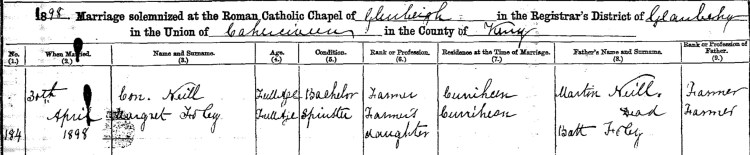 1898 Marriage solemnized at the Roman Catholic Chapel of Glenbeigh in the Registrar's District of Glanbehy
in the Union of Caherciveen in the County of Kerry
No. When Married. Name and Surname. Age. Condition. Rank or Profession. Residence at the Time of Marriage. Father's Name and Surname. Rank or Profession of Father.
(1.) (2.) (3.) (4.) (5.) (6.) (7.) (8.) (9.)
30th Con. Neill Full Age Bachelor Farmer Curriheen Martin Neill Farmer
April Margret Foley Full Age Spinster Farmer's Curriheen Dead Farmer
184 1898 daughter Batt Foley